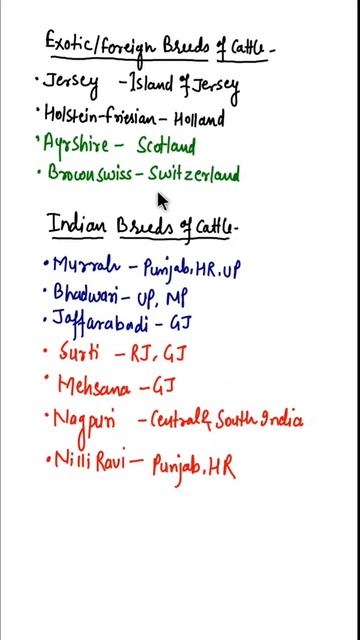 Exotic/Foreign Breeds of Cattle-
• Jersey - Island of Jersey
• Holstein-friesian - Holland
• Ayrshire - Scotland
• Brown Swiss - Switzerland
Indian Breeds of Cattle-
• Murrah - Punjab, HR, UP
• Bhadwari - UP, MP
• Jaffarabadi - GJ
• Surti - RJ, GJ
• Mehsana - GJ
• Nagpuri - Central & South India
• Nilli Ravi - Punjab, HR